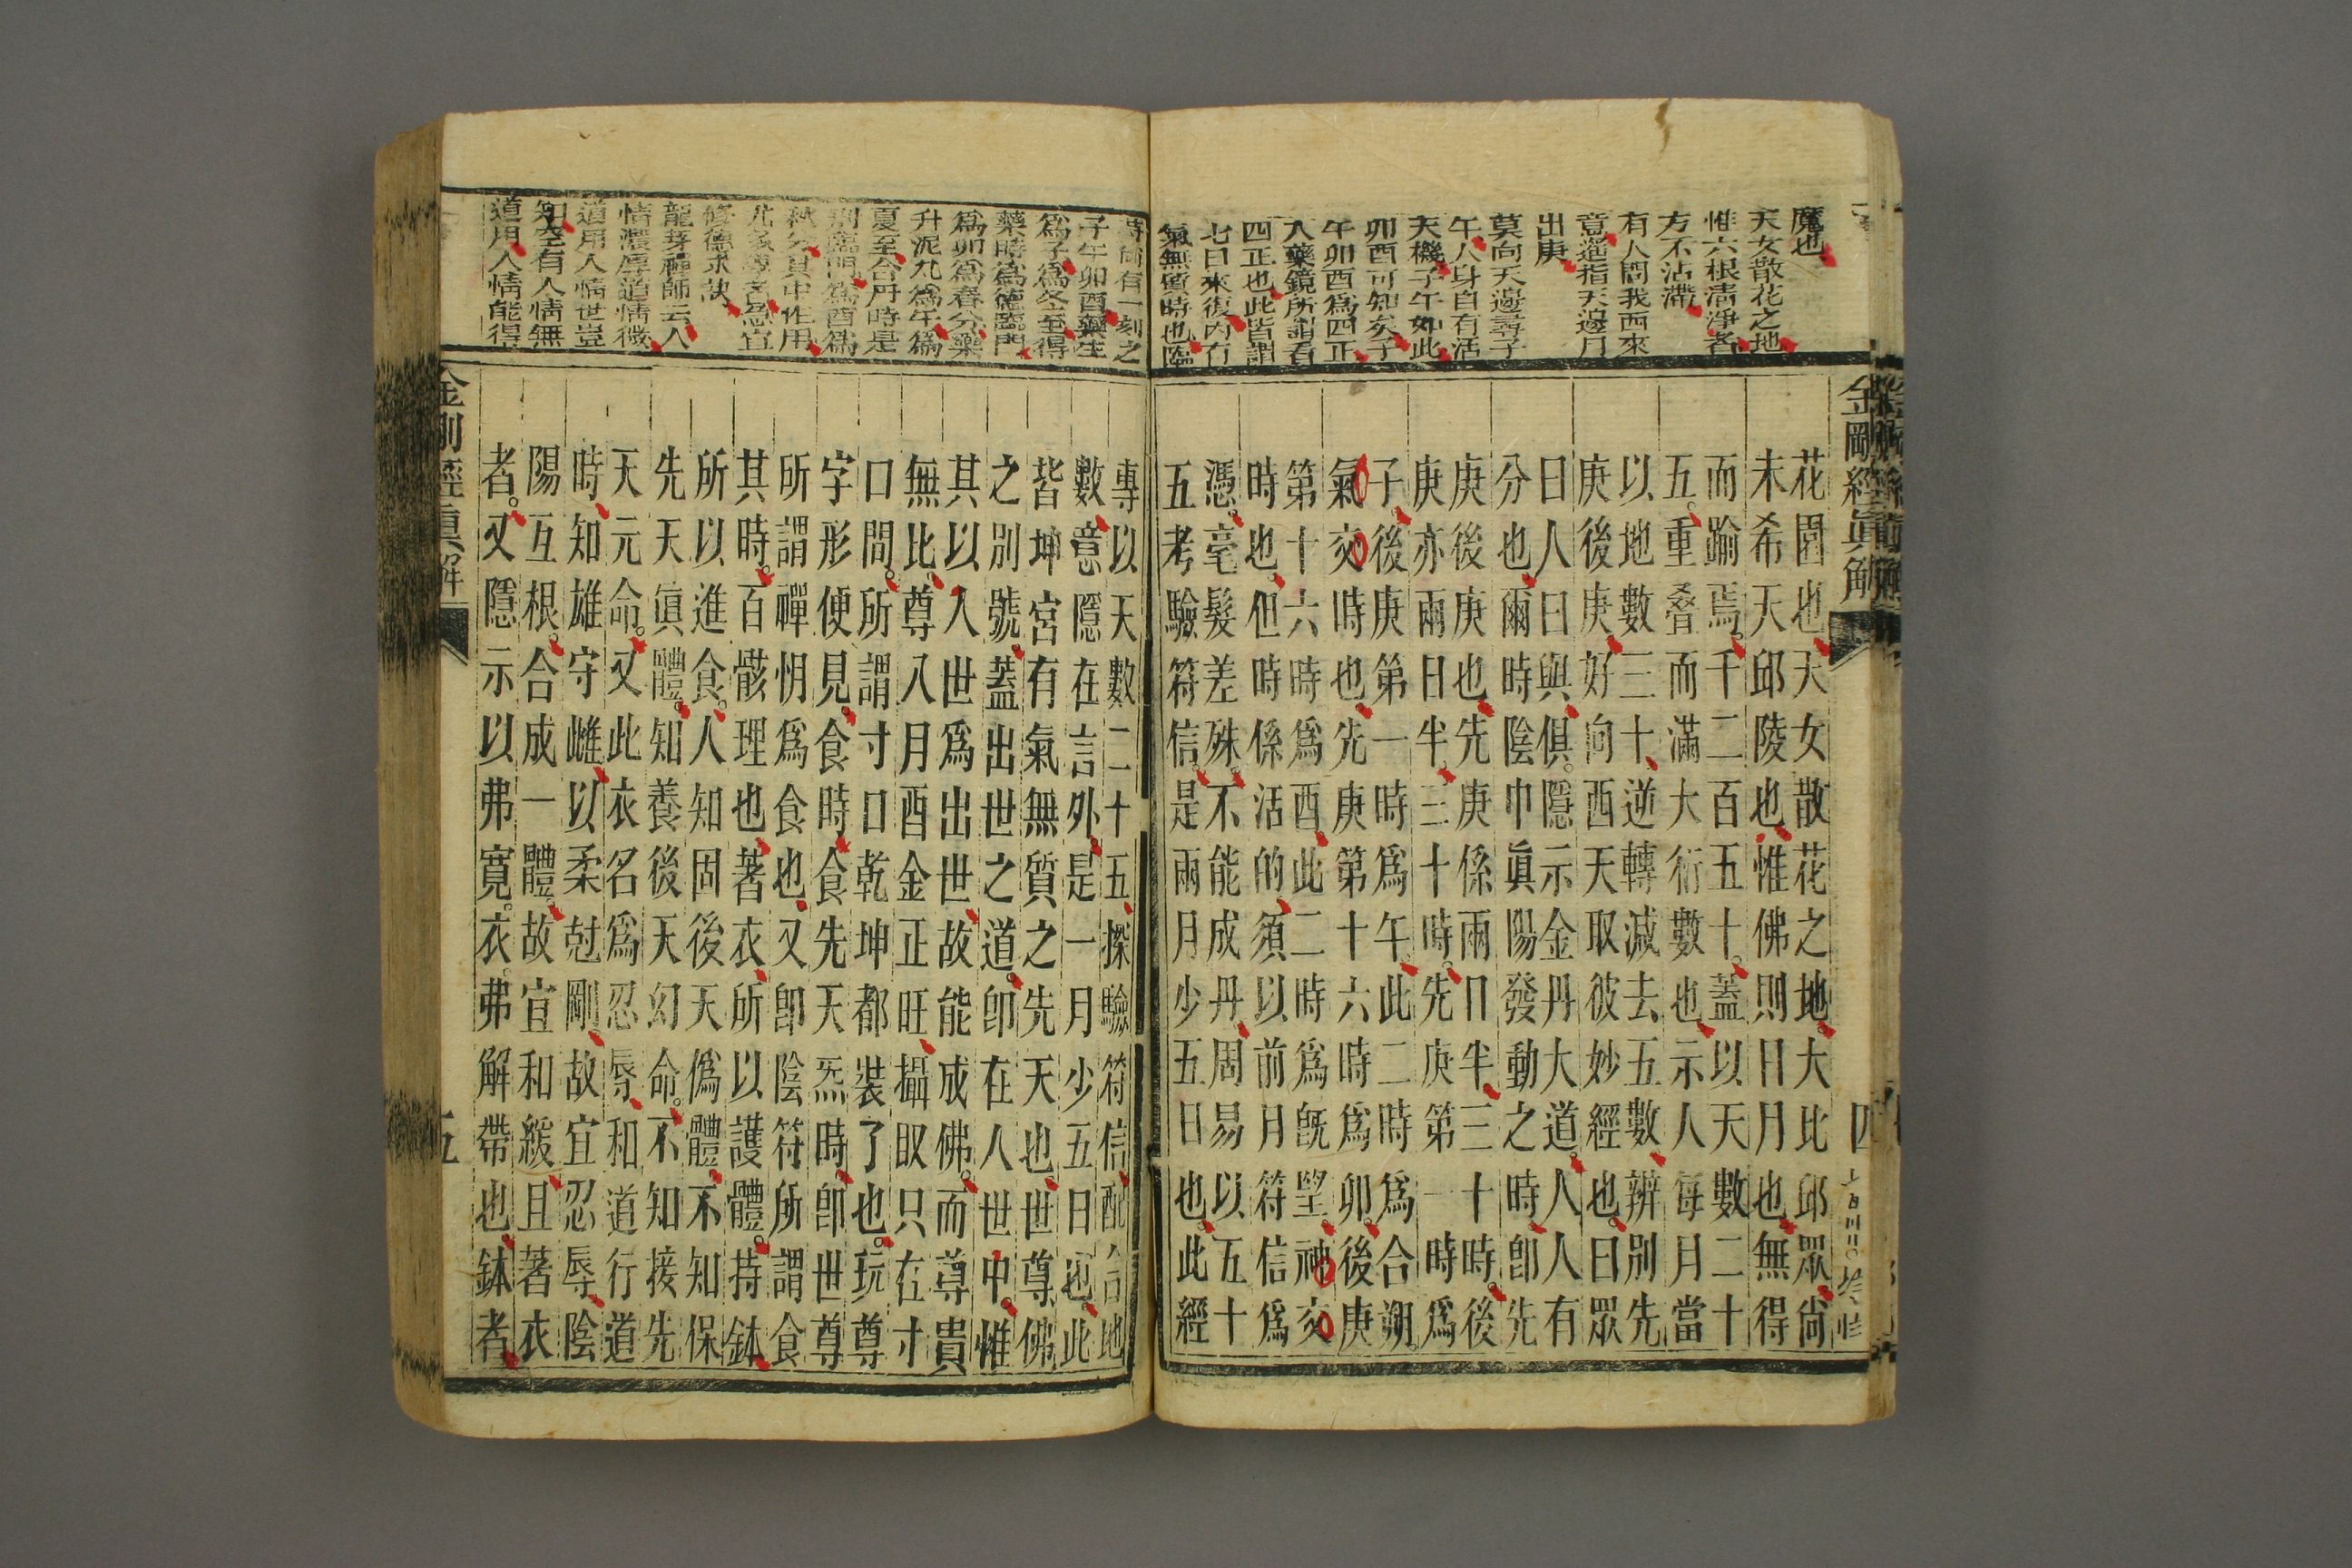 魔也
天女散花之地
惟六根清淨者
方不沾滯
有人問我西來
意遙指天邊月
出庚
莫向天邊尋子
午人身自有活
天機子午如此
卯酉可知矣子
午卯酉爲四正
入藥鏡所謂看
四正也此皆謂
七日來復內有
氣無質時也臨
金剛經眞解
花園也天女散花之地大比邱眾尙
未希天邱陵也惟佛則日月也無得
而踰焉千二百五十蓋以天數二十
五重疊而滿大衍數也示人每月當
以地數三十逆轉減去五數辨別先
庚後庚好向西天取彼妙經也曰眾
曰人曰與俱隱示金丹大道人人有
分也爾時陰中眞陽發動之時卽先
庚後庚也先庚係兩日半三十時後
庚亦兩日半三十時先庚第一時爲
子後庚第一時爲午此二時爲合朔
氣交時也先庚第十六時爲卯後庚
第十六時爲酉此二時爲旣望神交
時也但時係活的須以前月符信爲
憑毫髮差殊不能成丹周易以五十
五考驗符信是兩月少五日也此經
四
尊尙有一刻之
子午卯酉藥生
爲子爲冬至得
藥時爲德臨門
爲卯爲春分藥
升泥丸爲午爲
夏至合丹時是
刑臨門爲酉爲
秋分其中作用
尤多學者急宜
修德求訣
龍牙禪師云人
情濃厚道情微
道用人情世豈
知空有人情無
道用人情能得
專以天數二十五探驗符信配合地
數意隱在言外是一月少五日也此
皆坤宮有氣無質之先天也世尊佛
之別號蓋出世之道卽在人世中惟
其以人世爲出世故能成佛而尊貴
無比尊八月酉金正旺攝取只在寸
口問所謂寸口乾坤都裝了也玩尊
字形便見食時食先天炁時卽世尊
所謂禪悅爲食也又卽陰符所謂食
其時百骸理也著衣所以護體持鉢
所以進食人知固後天僞體不知保
先天眞體知養後天幻命不知接先
天元命又此衣名爲忍辱和道行道
時知雄守雌以柔尅剛故宜忍辱陰
陽互根合成一體故宜和緩且著衣
者又隱示以弗寬衣弗解帶也鉢者
金剛經眞解
五